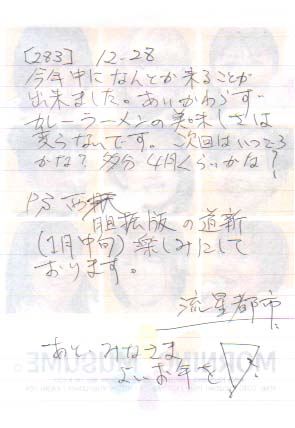 [283] 12-28
今年中になんとか来ることが
出来ました。あいかわらず
カレーラーメンの美味しさは
変らないです。次回はいつごろ
かな？多分4月くらいかな？
P.S
版の道新
(1月中旬)楽しみにして
おります。
流星都市
あと、みなさま
よいお年を！
MORNING MUSUME